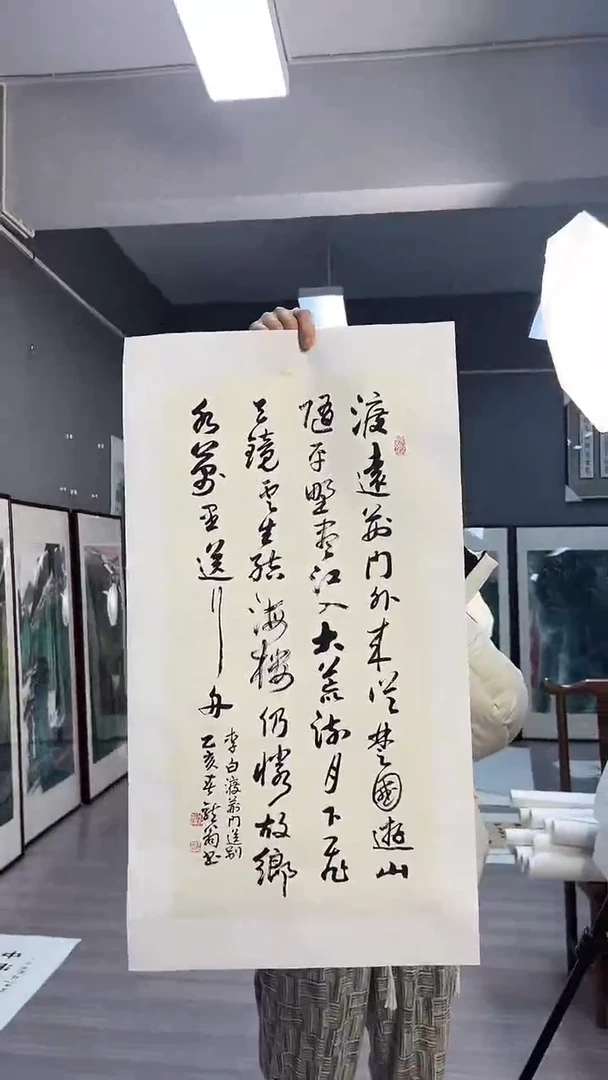 渡遠荊門外来從楚國遊山
隨平野盡江入大荒流月下飛
天鏡雲生結海樓仍憐故鄉
水萬里送行舟
李白渡荊門送别
乙亥春龍翁書
中